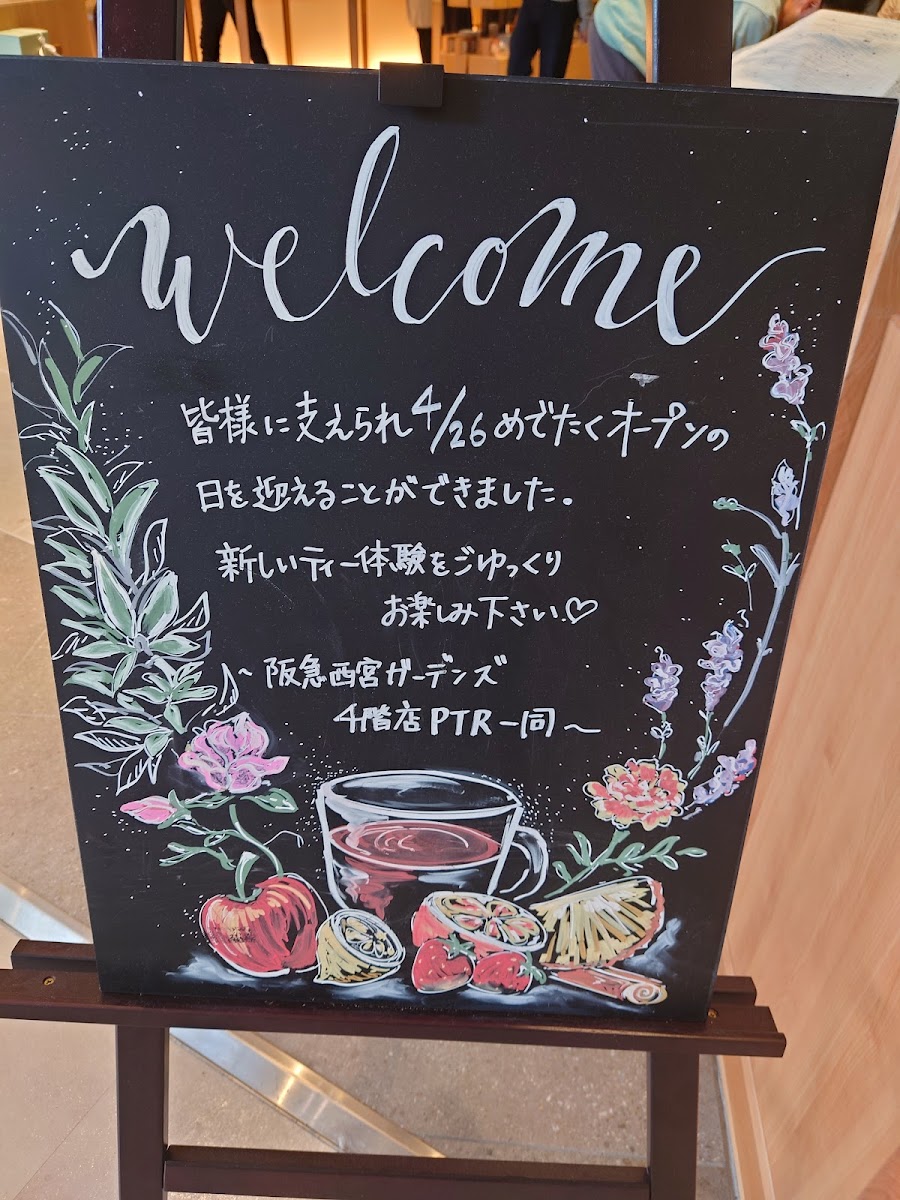 welcome
皆様に支えられ4/26めでたくオープンの
日を迎えることができました。
新しいティー体験をごゆっくり
お楽しみ下さい♡
~ 阪急西宮ガーデンズ
4階店PTR一同 ~